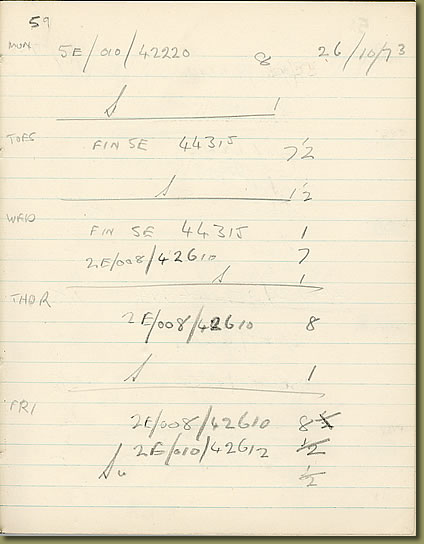 59
MON 5E/010/42220 8 26/10/73
S 1
TUES FIN 5E 44315 7½
S 1½
WED FIN 5E 44315 1
2E/008/42610 7
S 1
THUR
2E/008/42610 8
S 1
FRI
2E/008/42610 8
2E/010/42612 ½
S ½